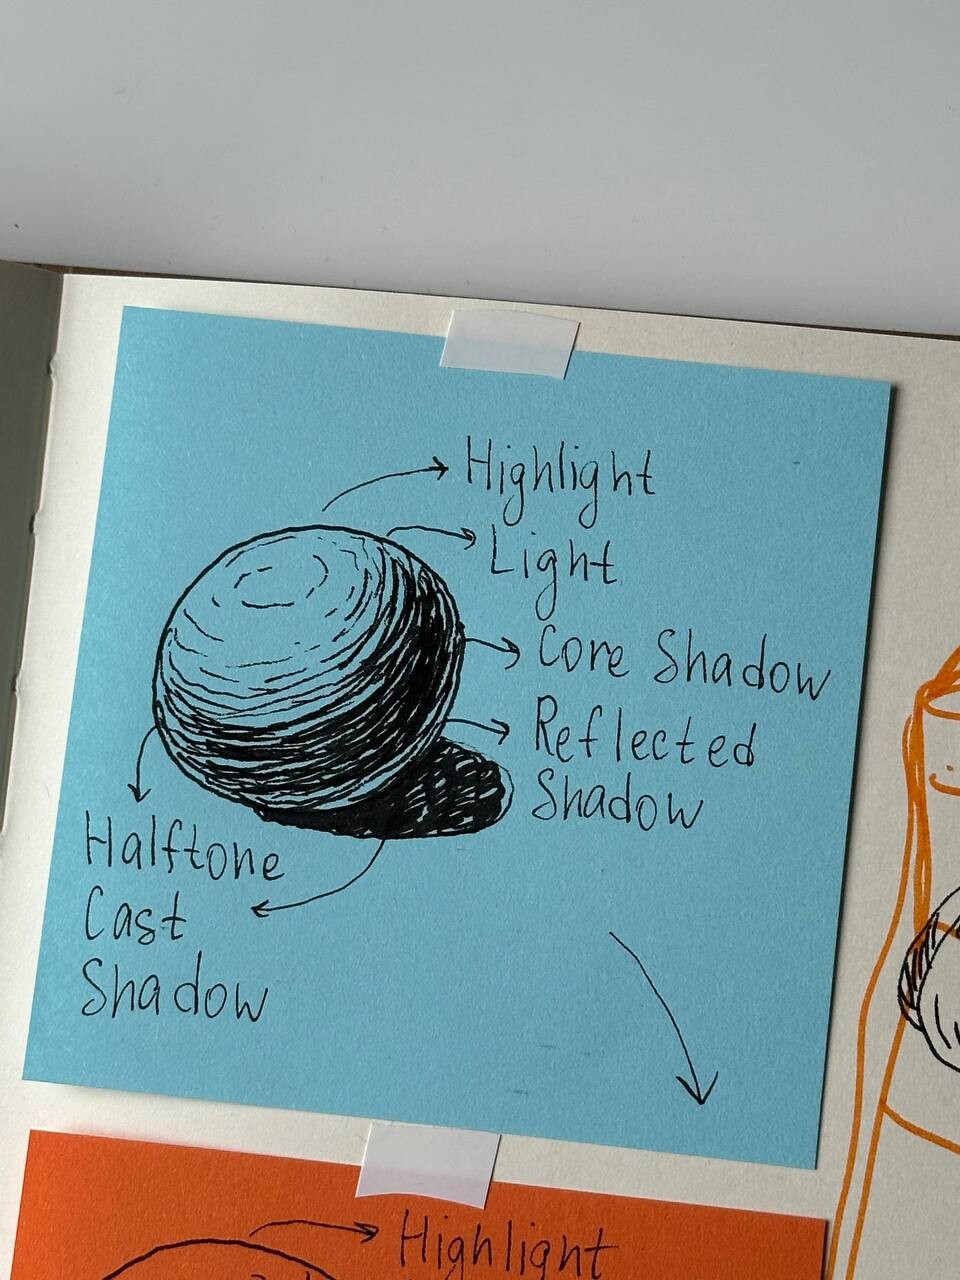 Highlight
Light
Core Shadow
Reflected
Shadow
Halftone
Cast
Shadow
Highlight